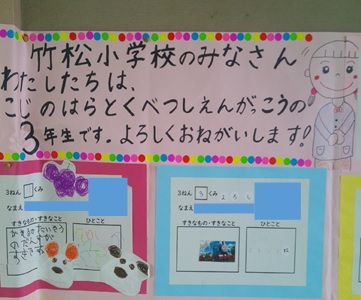 竹松小学校のみなさん
わたしたちは、
こじのはらとくべつしえんがっこうの
3年生です。よろしくおねがいします!
3ねん くみ
なまえ
すきなもの・すきなこと ひとこと
3ねん くみ
なまえ
すきなもの・すきなこと ひとこと